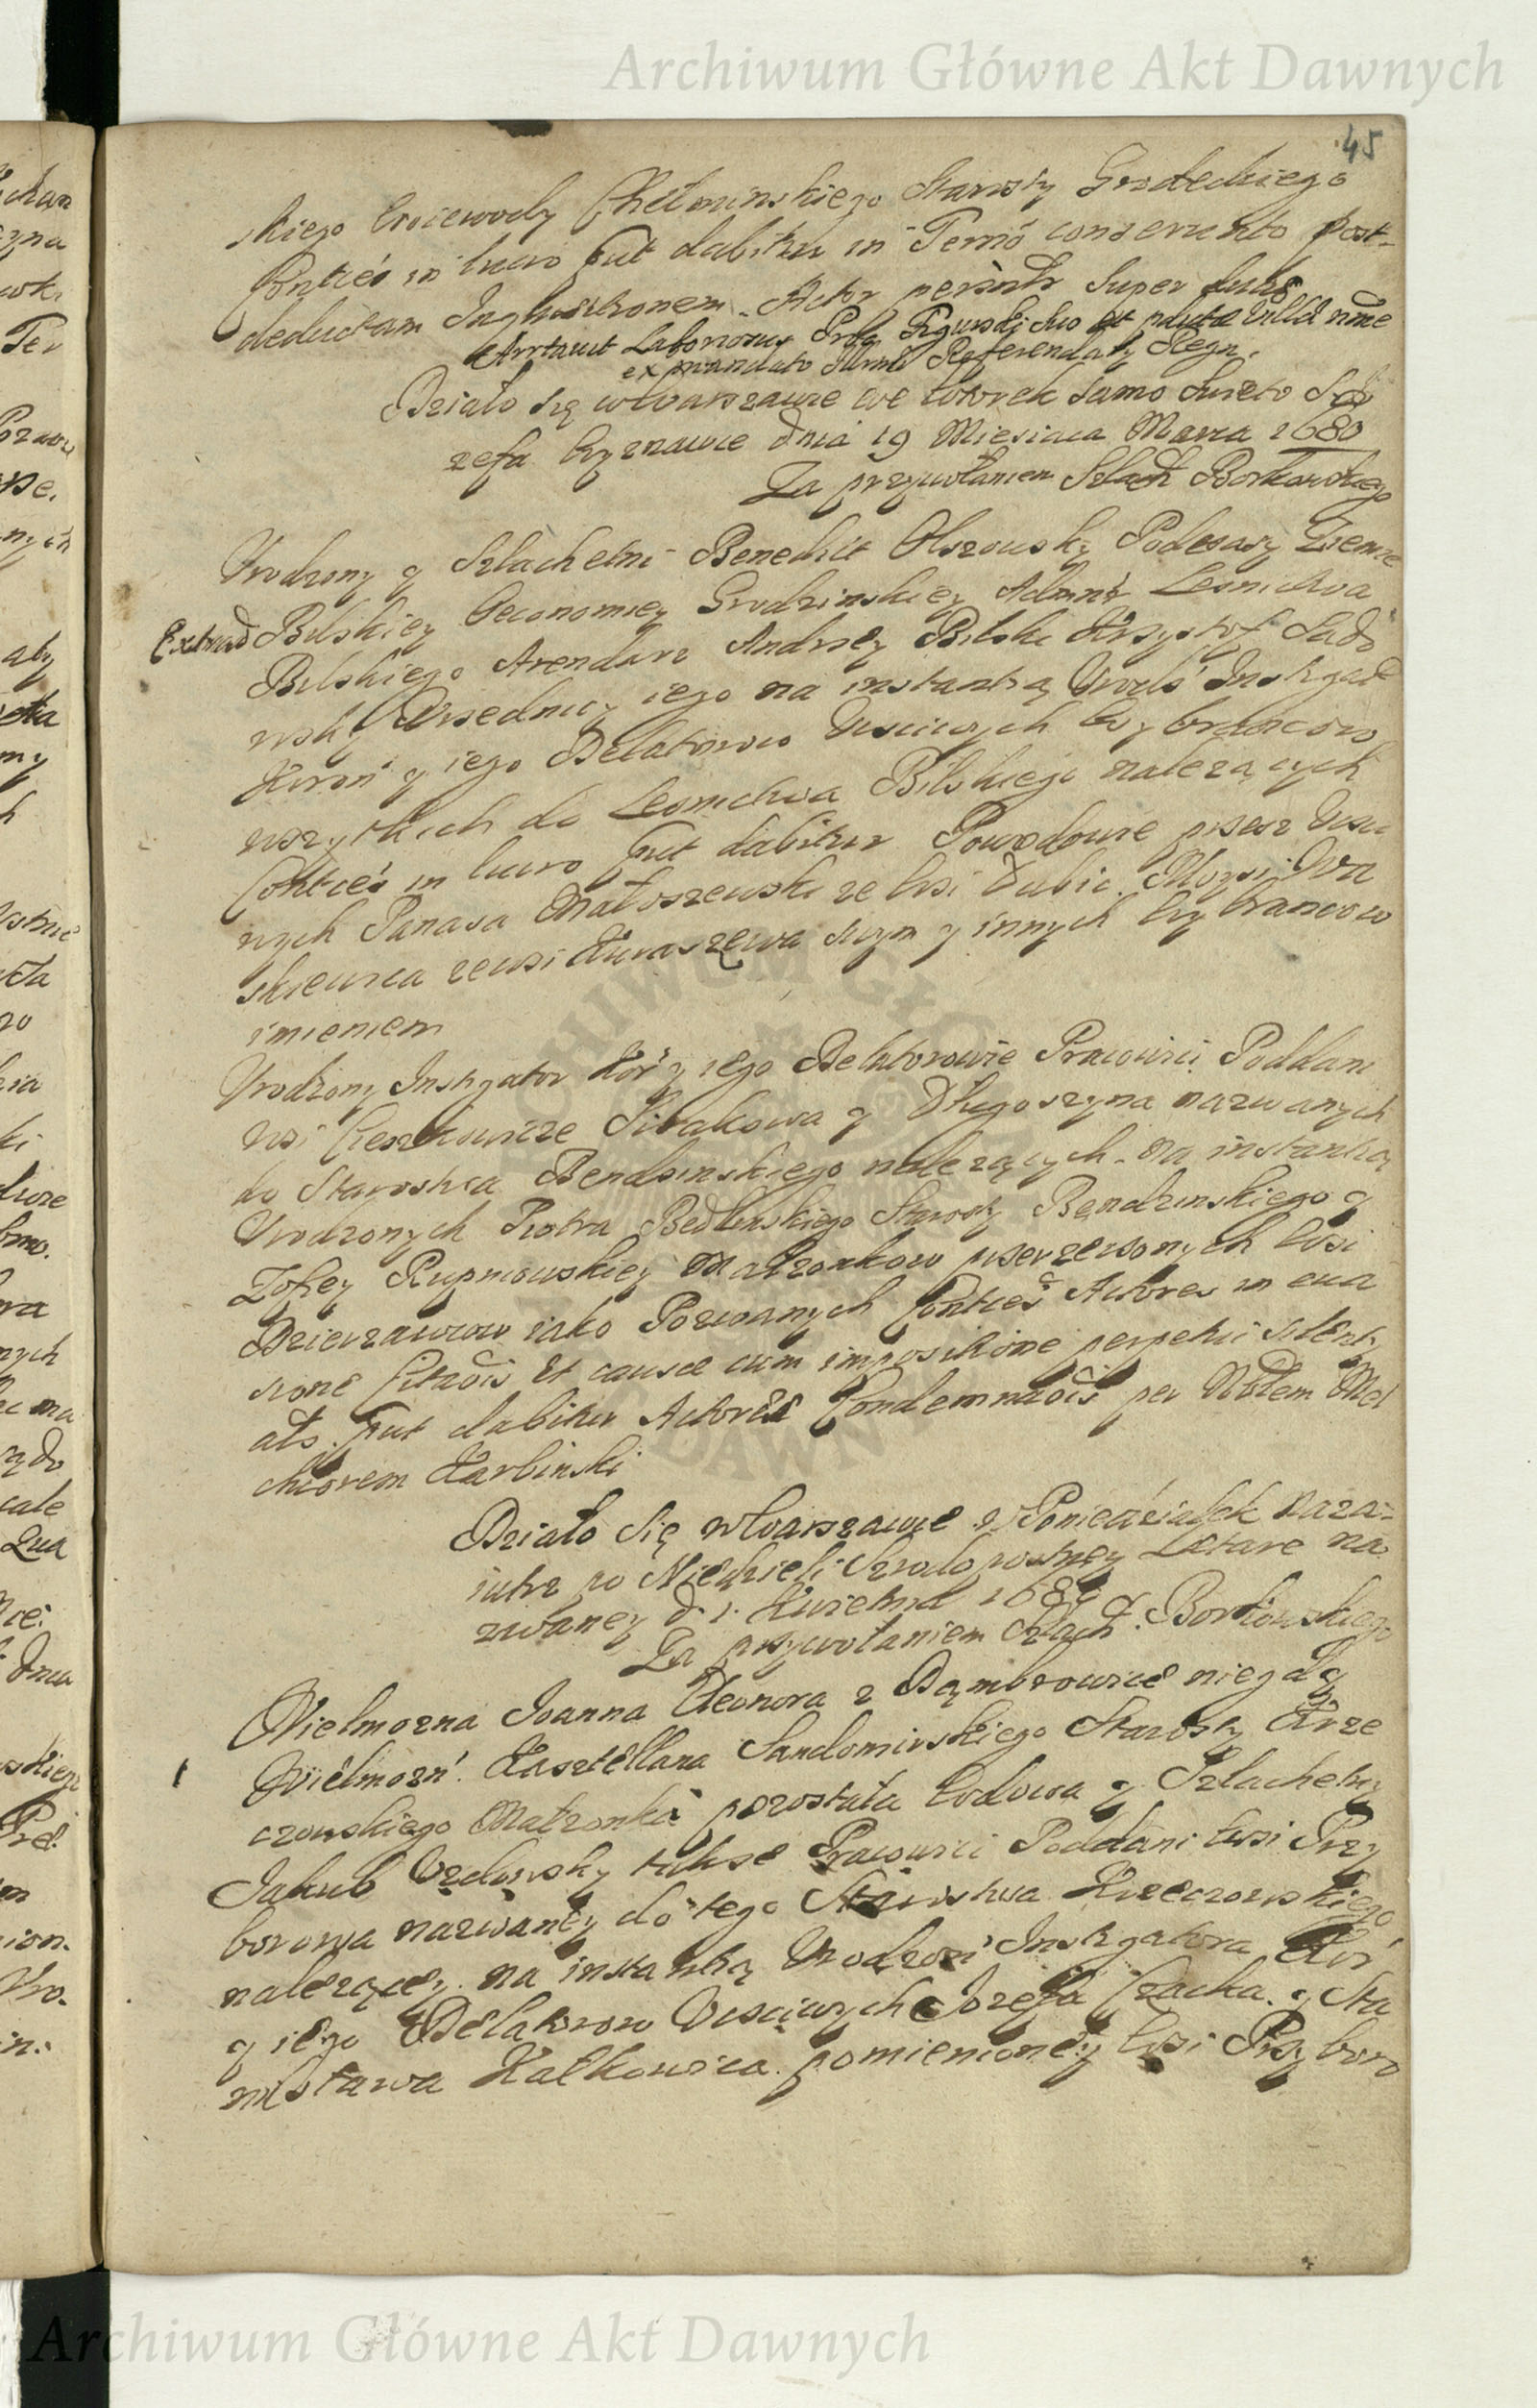 Archiwum Główne Akt Dawnych
45
skiego Woiewody Chełminskiego Starosty Grodeckiego
Conties in luwo fut dabitur in Termo conserwato post
deductam Inquisitionem. Actor periit super
Arrtauit Laboriosus suo et nõe
ex mandato Illrmi Referendarÿ Regn.
Działo się w Warszawie we Wtorek samo Swięto S Jo
zefa Wyznawce dnia 19 Miesiąca Marca 1680
Za przywołaniem Szlach Borkowskiego
Vrodzony y Szlachetni Benedict Olszowsky Podczaszy Ziemie
Extrad Bilskiey Oeconomiey Grodzinskiey Admnr Lesnictwa
Bilskiego Arendarz Andrzey Bilski Krzysztof Sado
wsky Vrzednicy iego na instantią Vrodz Instigat
Koron y iego Delatorow Vsciwych Wybrancow
wszytkich do Lesnictwa Bilskiego nalezących
Conties in luwo fut dabitur Powodowie przez Vsci
wych Panasa Małoszewski ze Wsi Dubic. Iwa
skiewica zewsi Kuraszewa swym y innych Wybrancow
imieniem
Vrodzony Instigator Kor y iego Delatorowie Pracowici Poddani
Wsi Cieszkowice Sirakowa y Długoszyna nazwanych
do Starostwa Bendzinskiego nalezących. na instantią
Vrodzonych Piotra Bedlinskiego Starosty Bendzinskiego y
Zofiey Rupniowskiey Małzonkow pierzeczonych Wsi
Dzierzawcow iako Pozwanych Conties Actores in eua
sione Citaõis et causæ cum impositione perpetui silenty
ats. fut dabitur Actores Condemnaõis per Nobem Mel
chiorem Karbinski
Działo się w Warszawie w Poniedziałek naza-
iutrz po Niedzieli Szrodopostney Letare na
zwaney d. 1. Kwietnia 1680
Za przywołaniem Szlach. Borkowskiego
Wielmozna Joanna Eleonora z Dąmbrowice niegdy
Wielmozn. Kasztellana Sandomirskiego Starosty Krze
czowskiego Małzonka pozostała Wdowa y Szlachetny
Jakub Vzdowsky takze Pracowici Poddani Wsi Przy
borowa nazwaney do tego Starostwa Krzeczowskiego
nalezącey na instantią Vrodzon Instigatora Kor
y iego Delatorow Vsciwych Jozefa Czacka. y Sta
nisława Kałkowica. pomienioney Wsi Przyboro
Archiwum Główne Akt Dawnych